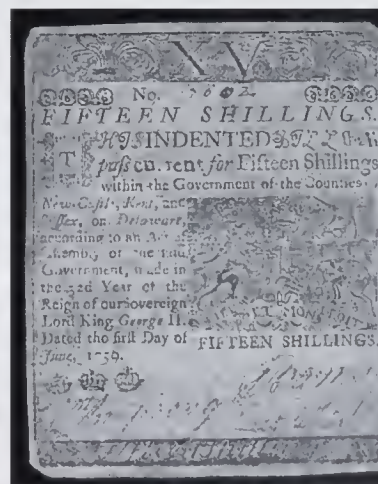 XV
No.
FIFTEEN SHILLINGS.
THIS INDENTED BILL shall
pass current for Fifteen Shillings
within the Government of the Counties
New-Castle, Kent, and
Sussex, on Delaware,
according to an Act of
Assembly of the said
Government, made in
the Year of the
Reign of our sovereign
Lord King George II.
Dated the first Day of
June, 1759.
FIFTEEN SHILLINGS.